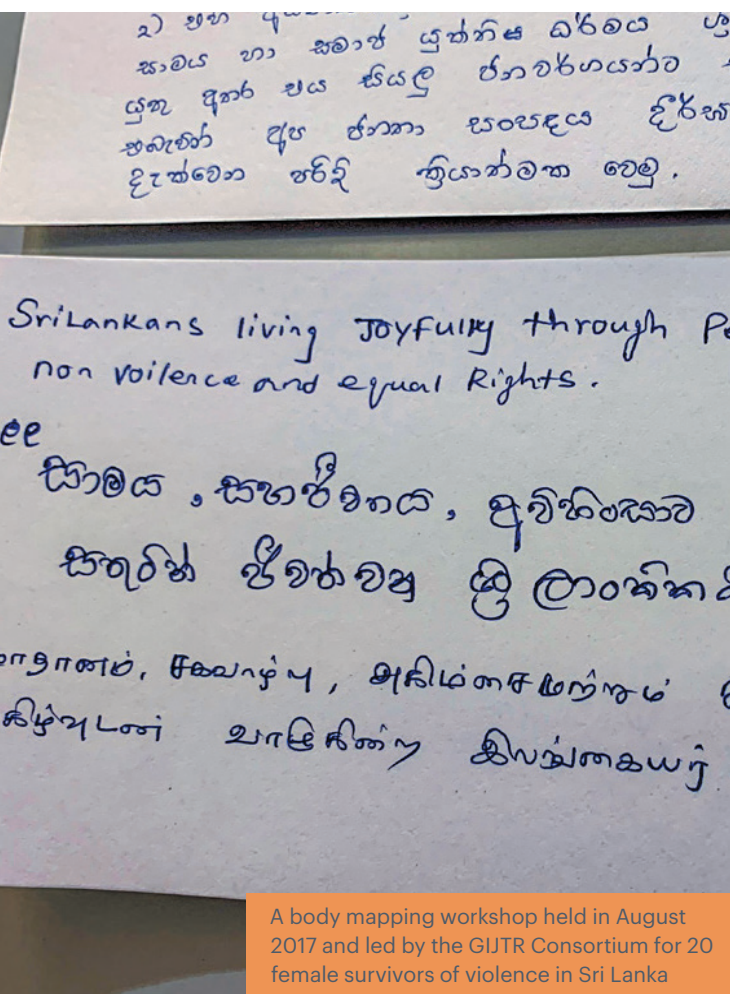 2) එහ
සාමය හා සමාජ යුක්තිය ධර්මය
යුතු අතර එය සියලු ජනවර්ගයන්ට
එබැවින් අප ජනතා සංපදය දීර්ඝ
දැක්වෙන පරිදි ක්‍රියාත්මක වෙමු.
SriLankans living Joyfully through Pe
non voilence and equal Rights.
ee
සාමය, සහජීවනය, අවිහිංසාව
සතුටින් ජීවත්වන ශ්‍රී ලාංකික
ாதானம், சகவாழ்வு, அகிம்சை மற்றும்
கிழ்வுடன் வாழுகின்ற இலங்கையர்
A body mapping workshop held in August
2017 and led by the GIJTR Consortium for 20
female survivors of violence in Sri Lanka